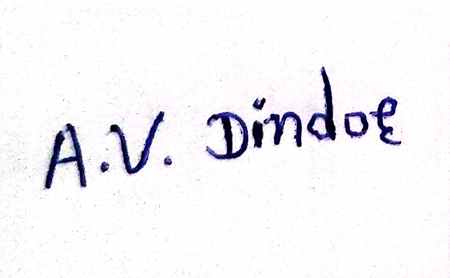 A.V. Dindoe